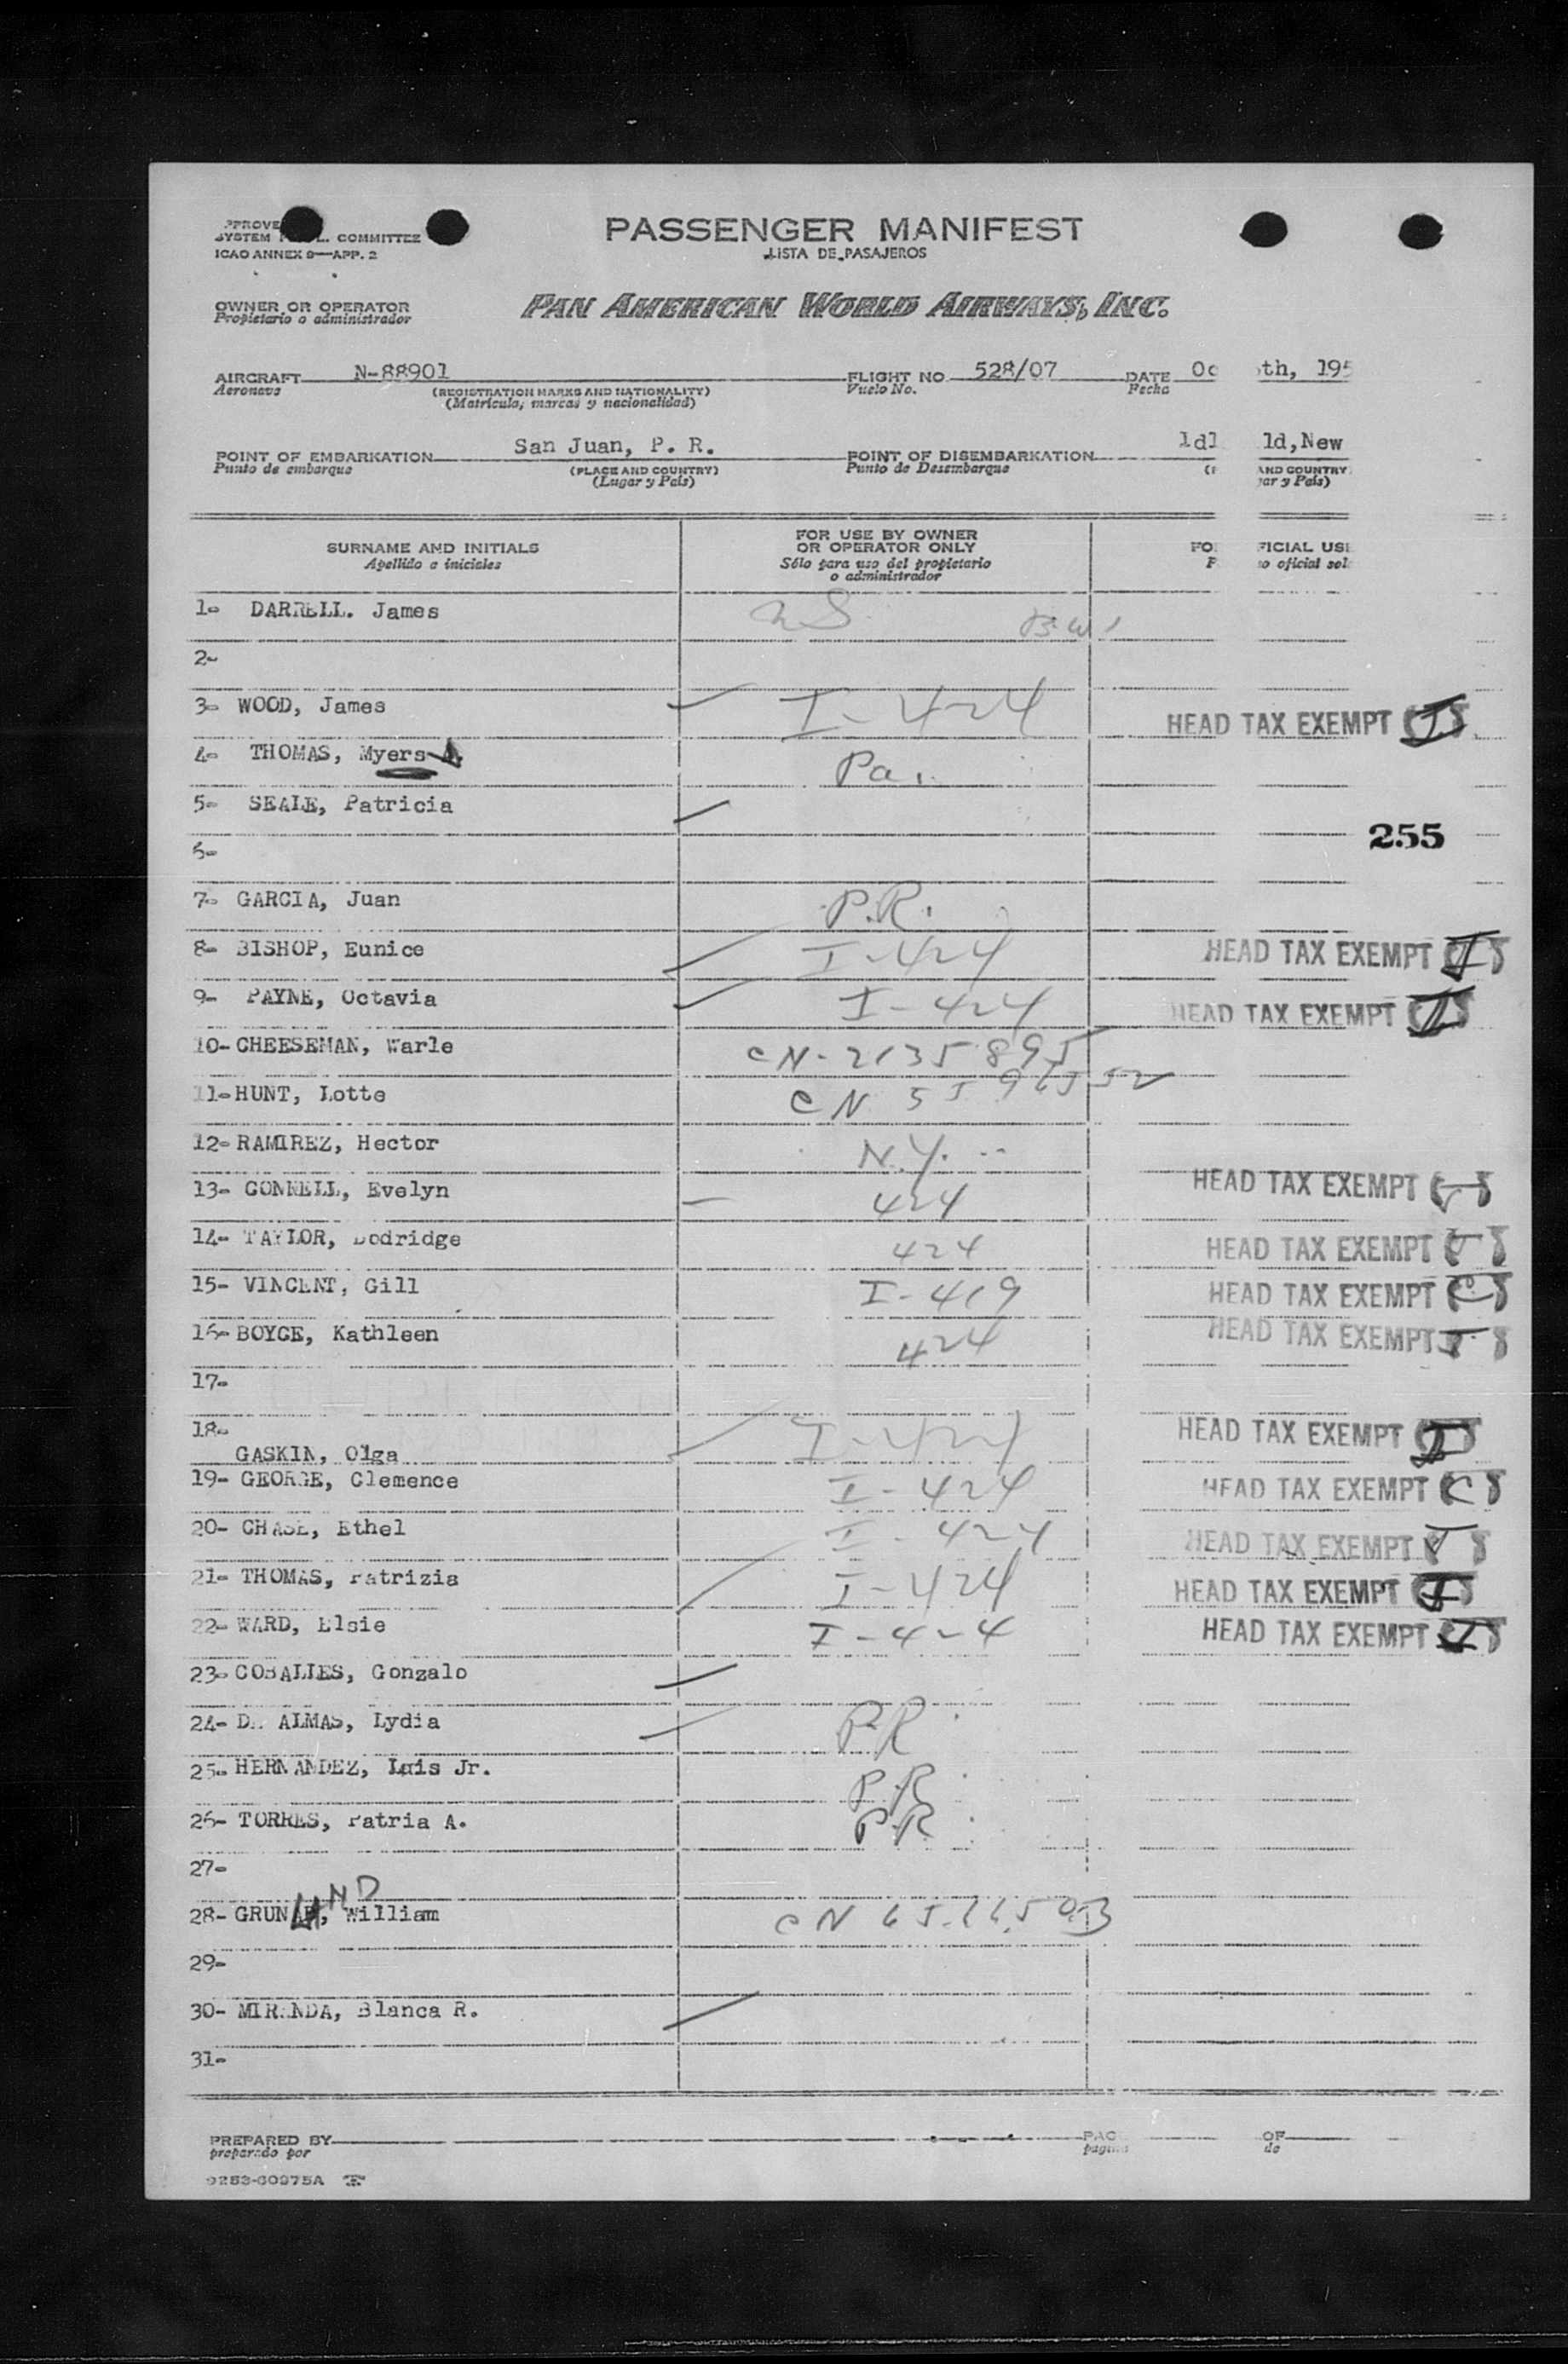 SYSTEM COMMITTEE
ICAO ANNEX 9—APP. 2
PASSENGER MANIFEST
LISTA DE PASAJEROS
OWNER OR OPERATOR
Propietario o administrador
PAN AMERICAN WORLD AIRWAYS, INC.
AIRCRAFT N-88901 FLIGHT NO. 528/07 DATE Oc th, 195
Aeronave (REGISTRATION MARKS AND NATIONALITY) Vuelo No. Fecha
(Matricula, marcas y nacionalidad)
POINT OF EMBARKATION San Juan, P. R. POINT OF DISEMBARKATION ld, New
Punto de embarque (PLACE AND COUNTRY) Punto de Desembarque AND COUNTRY
(Lugar y País) gar y País)
SURNAME AND INITIALS FOR USE BY OWNER OR OPERATOR ONLY FICIAL USE
Apellido e iniciales Sólo para uso del propietario o administrador oficial
1- DARRELL. James US B.W.I
2-
3- WOOD, James I-424 HEAD TAX EXEMPT
4- THOMAS, Myers Pa.
5- SEALE, Patricia
255
6-
7- GARCIA, Juan P.R.
8- BISHOP, Eunice I-424 HEAD TAX EXEMPT
9- PAYNE, Octavia I-424 HEAD TAX EXEMPT
10- CHEESEMAN, Warle CN-2135895
11- HUNT, Lotte CN
12- RAMIREZ, Hector N.Y.
13- GONNELL, Evelyn 424 HEAD TAX EXEMPT
14- TAYLOR, Dodridge 424 HEAD TAX EXEMPT
15- VINCENT, Gill I-419 HEAD TAX EXEMPT
16- BOYCE, Kathleen 424 HEAD TAX EXEMPT
17-
18- GASKIN, Olga I-424 HEAD TAX EXEMPT
19- GEORGE, Clemence I-424 HEAD TAX EXEMPT
20- CHASE, Ethel I-424 HEAD TAX EXEMPT
21- THOMAS, Patrizia I-424 HEAD TAX EXEMPT
22- WARD, Elsie I-424 HEAD TAX EXEMPT
23- COBALLES, Gonzalo
24- DE ALMAS, Lydia P.R
25- HERNANDEZ, Luis Jr. P.R
26- TORRES, Patria A. P.R
27-
28- GRUNLAND, William CN
29-
30- MIRANDA, Blanca R.
31-
PREPARED BY PAG OF
preparado por pagina de